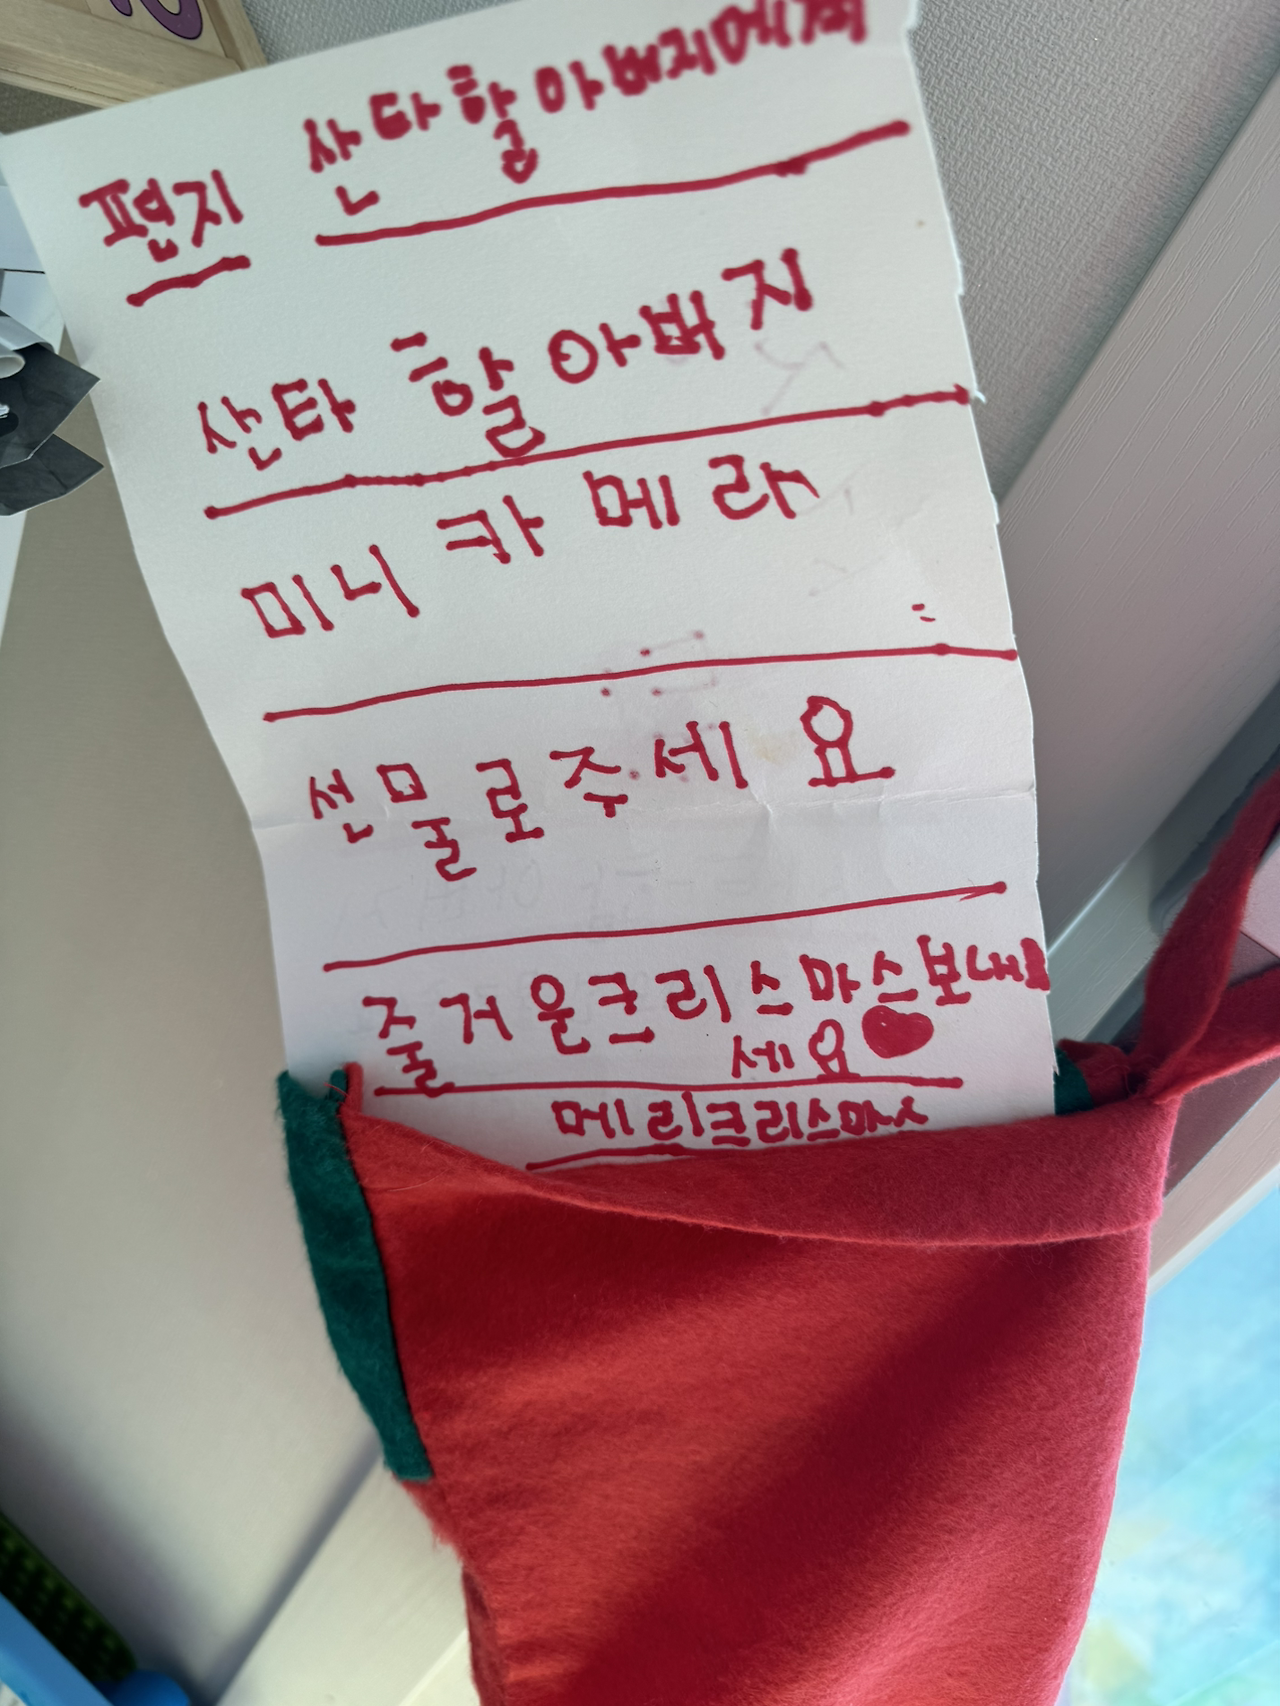 편지 산타할아버지에게
산타 할아버지
미니 카메라
선물로주세요
줄거운크리스마스보내
세요
메리크리스마스